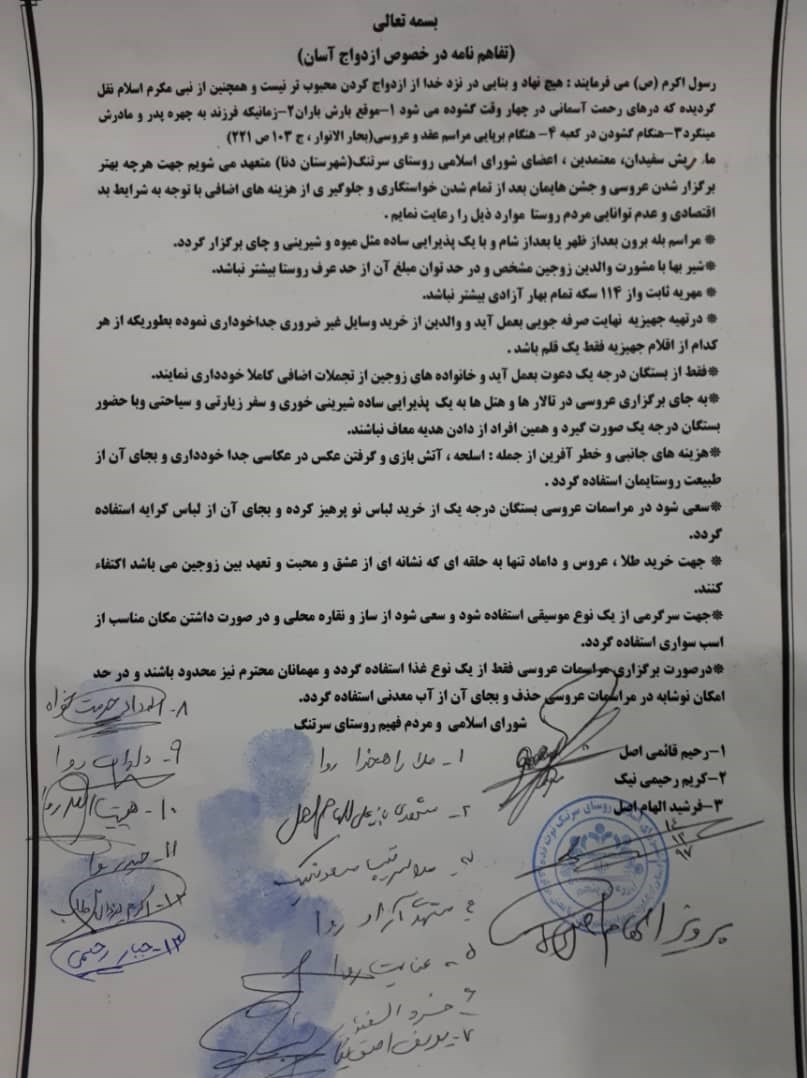 بسمه تعالی
(تفاهم نامه در خصوص ازدواج آسان)
رسول اکرم (ص) می فرمایند : هیچ نهاد و بنایی در نزد خدا از ازدواج کردن محبوب تر نیست و همچنین از نبی مکرم اسلام نقل
گردیده که درهای رحمت آسمانی در چهار وقت گشوده می شود ۱-موقع بارش باران۲-زمانیکه فرزند به چهره پدر و مادرش
مینگرد۳-هنگام گشودن در کعبه ۴- هنگام برپایی مراسم عقد و عروسی(بحار الانوار ، ج ۱۰۳ ص ۲۲۱)
ما ریش سفیدان، معتمدین ، اعضای شورای اسلامی روستای سرتنگ(شهرستان دنا) متعهد می شویم جهت هرچه بهتر
برگزار شدن عروسی و جشن هایمان بعد از تمام شدن خواستگاری و جلوگیر ی از هزینه های اضافی با توجه به شرایط بد
اقتصادی و عدم توانایی مردم روستا موارد ذیل را رعایت نمایم .
* مراسم بله برون بعداز ظهر یا بعداز شام و با یک پذیرایی ساده مثل میوه و شیرینی و چای برگزار گردد.
*شیر بها با مشورت والدین زوجین مشخص و در حد توان مبلغ آن از حد عرف روستا بیشتر نباشد.
* مهریه ثابت واز ۱۱۴ سکه تمام بهار آزادی بیشتر نباشد.
* درتهیه جهیزیه نهایت صرفه جویی بعمل آید و والدین از خرید وسایل غیر ضروری جداخوداری نموده بطوریکه از هر
کدام از اقلام جهیزیه فقط یک قلم باشد .
*فقط از بستگان درجه یک دعوت بعمل آید و خانواده های زوجین از تجملات اضافی کاملا خودداری نمایند.
*به جای برگزاری عروسی در تالار ها و هتل ها به یک پذیرایی ساده شیرینی خوری و سفر زیارتی و سیاحتی وبا حضور
بستگان درجه یک صورت گیرد و همین افراد از دادن هدیه معاف نباشند.
*هزینه های جانبی و خطر آفرین از جمله : اسلحه ، آتش بازی و گرفتن عکس در عکاسی جدا خودداری و بجای آن از
طبیعت روستایمان استفاده گردد .
*سعی شود در مراسمات عروسی بستگان درجه یک از خرید لباس نو پرهیز کرده و بجای آن از لباس کرایه استفاده
گردد.
* جهت خرید طلا ، عروس و داماد تنها به حلقه ای که نشانه ای از عشق و محبت و تعهد بین زوجین می باشد اکتفاء
کنند.
*جهت سرگرمی از یک نوع موسیقی استفاده شود و سعی شود از ساز و نقاره محلی و در صورت داشتن مکان مناسب از
اسب سواری استفاده گردد.
*درصورت برگزاری مراسمات عروسی فقط از یک نوع غذا استفاده گردد و مهمانان محترم نیز محدود باشند و در حد
امکان نوشابه در مراسمات عروسی حذف و بجای آن از آب معدنی استفاده گردد.
شورای اسلامی و مردم فهیم روستای سرتنگ
۱-رحیم قائمی اصل
۲-کریم رحیمی نیک
۳-فرشید الهام اصل
۱۶
۱۲
۹۷
پرویز الهام اصل
۱- ملا راهخدا روا
۲-
۳-
۴- مشهدی آزاد روا
۵- عنایت روا
۶- خسرو
۷- یوسف
۸- امداد حرمت خواه
۹- داراب روا
۱۰- هیبت الله روا
۱۱- حیدر روا
۱۲- اکرم یزدان طلب
۱۳- جبار رحیمی